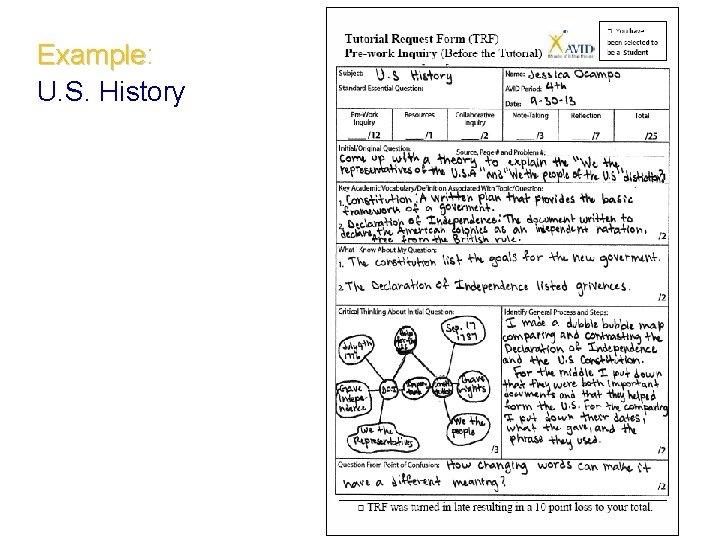 Example:
U.S. History
Tutorial Request Form (TRF)
Pre-work Inquiry (Before the Tutorial)
AVID
□ You have
been selected to
be a Student
Subject: U.S History
Name: Jessica Ocampo
Standard Essential Question:
AVID Period: 4th
Date: 9-30-13
Pre-Work Inquiry Resources Collaborative Inquiry Note-Taking Reflection Total
___/12 ___/1 ___/2 ___/3 ___/7 ___/25
Initial/Original Question: Source, Page# and Problem #:
Come up with a theory to explain the "We the
representatives of the U.S.A" and "We the people of the U.S"
Key Academic Vocabulary/Definition Associated With Topic/Question:
1. Constitution: A written plan that provides the basic
framework of a goverment.
2. Declaration of Independence: The document written to
declare the American colonies as an independent natation,
free from the British rule. /2
What I Know About My Question:
1. The constitution list the goals for the new goverment.
2. The Declaration of Independence listed grivences.
/2
Critical Thinking About Initial Question:
July 4th
1776
Sep. 17
1787
Gave
Indepe-
ndence
D.O.I
Gave
rights
We the
Representatives
We the
people
/3
Identify General Process and Steps:
I made a dubble bubble map
comparing and contrasting the
Declaration of Independence
and the U.S Constitution.
For the middle I put down
that they were both important
documents and that they helped
form the U.S. For the comparing
I put down their dates,
what the gave, and the
phrase they used.
/2
Question From Point of Confusion: How changing words can make it
have a different meaning?
/2
□ TRF was turned in late resulting in a 10 point loss to your total.